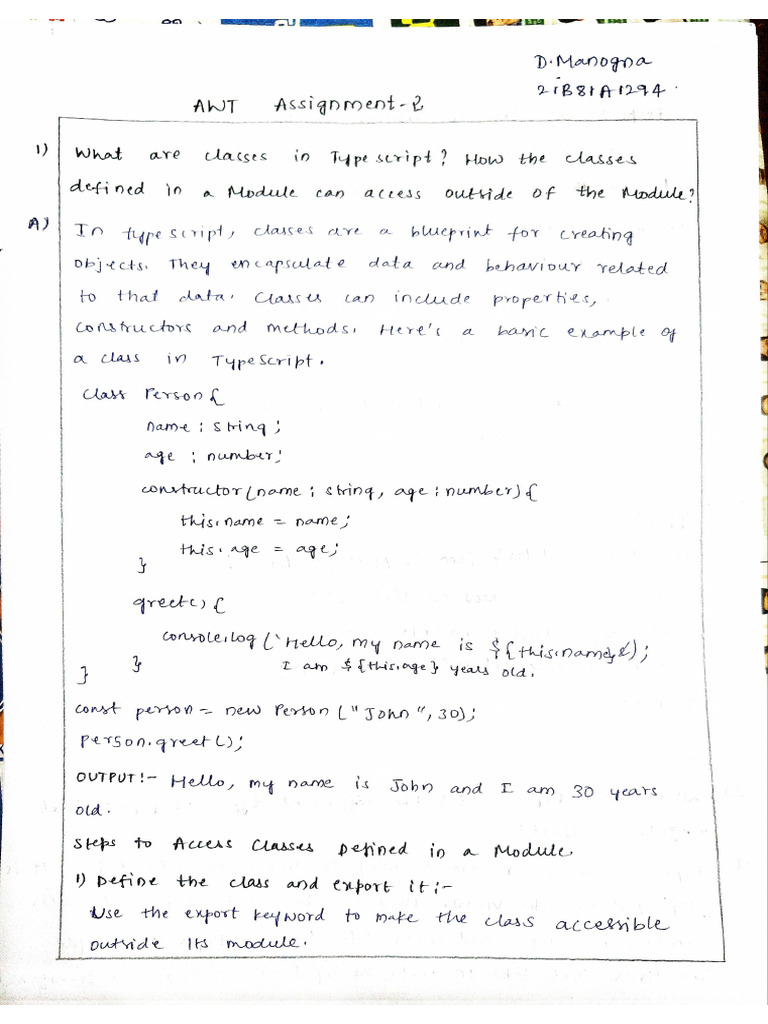 D.Manogna
21B81A1294.
AWT Assignment-2
1) What are classes in Typescript? How the classes
defined in a Module can access outside of the Module?
A) In typescript, classes are a blueprint for creating
objects. They encapsulate data and behaviour related
to that data. Classes can include properties,
constructors and methods. Here's a basic example of
a class in TypeScript.
class Person{
name : string ;
age : number;
constructor(name : string, age : number){
this.name = name;
this.age = age;
}
greet() {
console.log (`Hello, my name is ${this.name} &);
} I am ${this.age} years old.
}
const person = new Person ("John", 30);
person.greet();
OUTPUT:- Hello, my name is John and I am 30 years
old.
Steps to Access Classes Defined in a Module.
1) Define the class and export it:-
Use the export keyword to make the class accessible
outside its module.